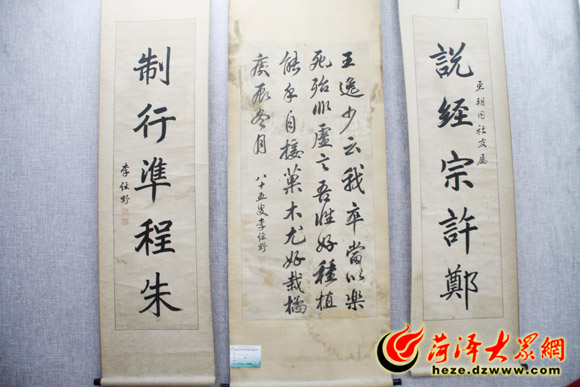 說經宗許鄭
同社友屬
王逸少云我卒當以樂
死殆非虛言吾性好種植
能手自接菓木尤好栽橘
庚辰冬月
八十五叟李經野
制行準程朱
李經野
菏泽大眾網
heze.dzwww.com